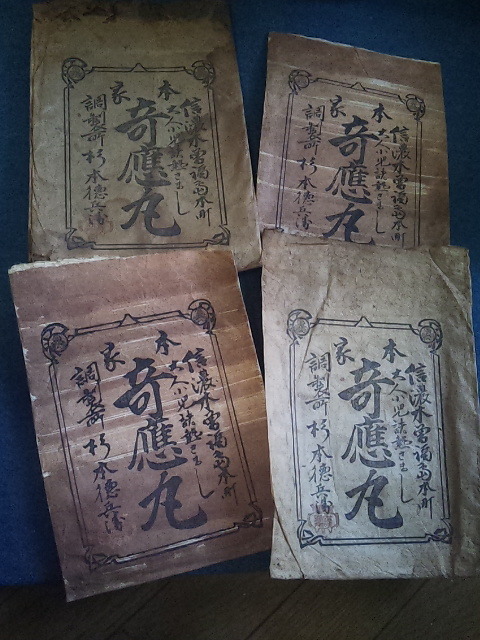 本家
信濃木曾福島本町
大人小児諸熱さまし
奇應丸
調製所 杉本徳兵衛
本家
信濃木曾福島本町
大人小児諸熱さまし
奇應丸
調製所 杉本徳
本家
信濃木曾福島本町
大人小児諸熱さまし
奇應丸
調製所 杉本徳兵衛
本家
信濃木曾福島本町
大人小児諸熱さまし
奇應丸
調製所 杉本徳兵衛